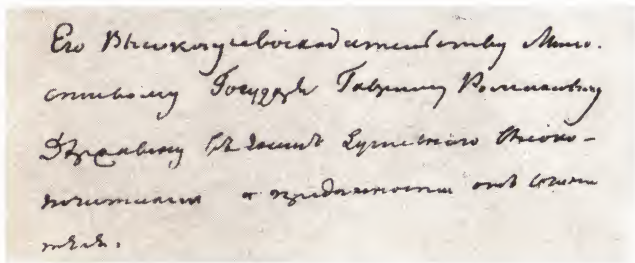 Его Высокопревосходительству Мило-
стивому Государю Гавриилу Романовичу
Державину въ знакъ душевнаго Высоко-
почитания и преданности отъ сочини
теля.